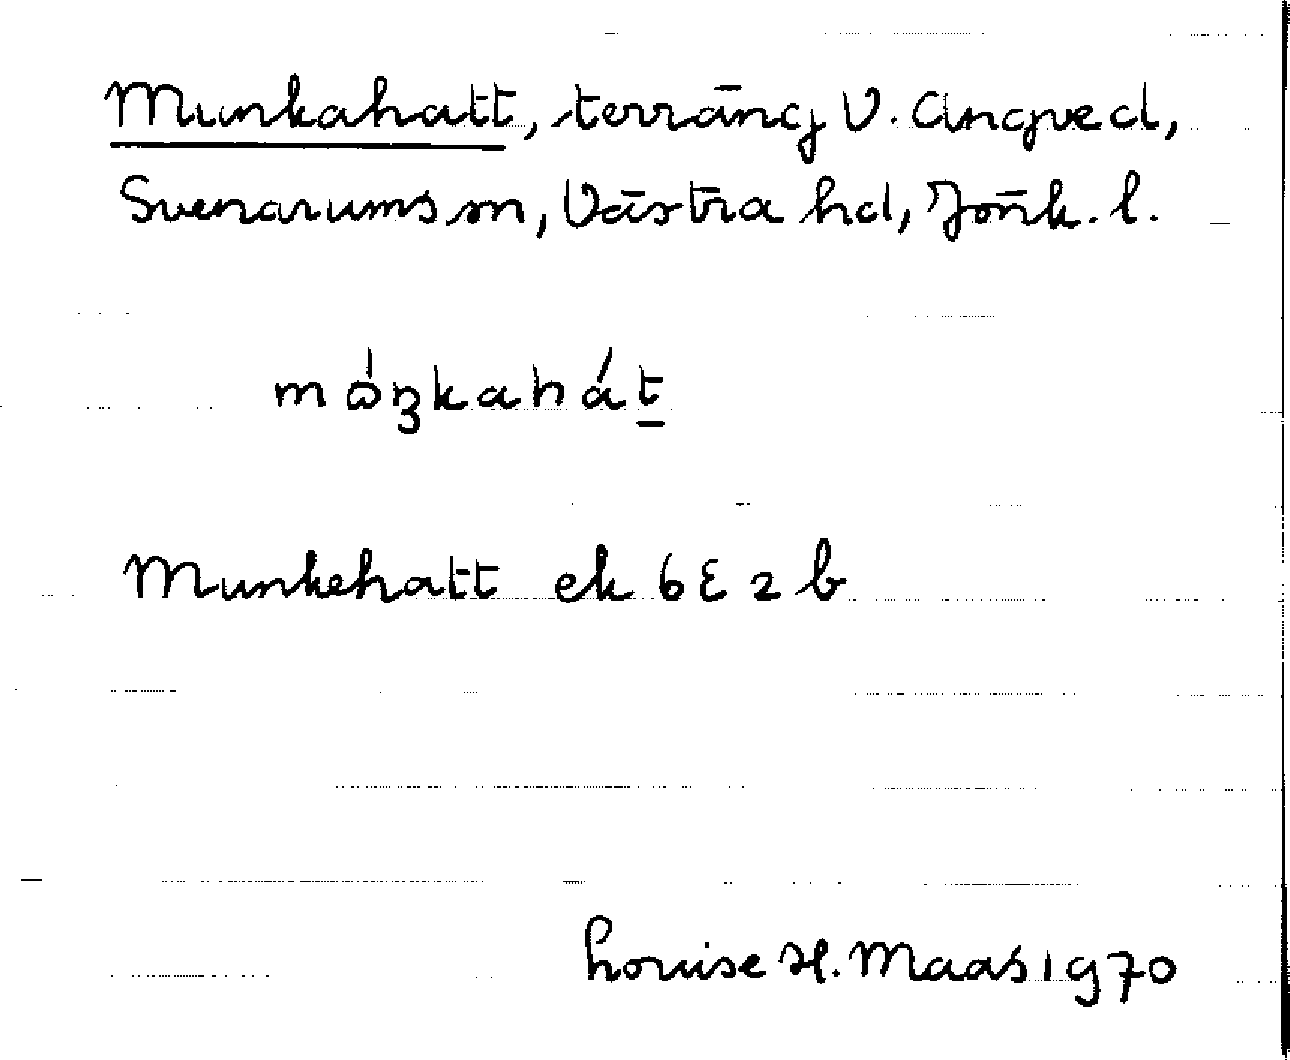 Munkahatt, terräng V. Angved,
Svenarums sn, Västra hd, Jönk. l.
Munkehatt ek 6E2b
Louise H. Maas 1970